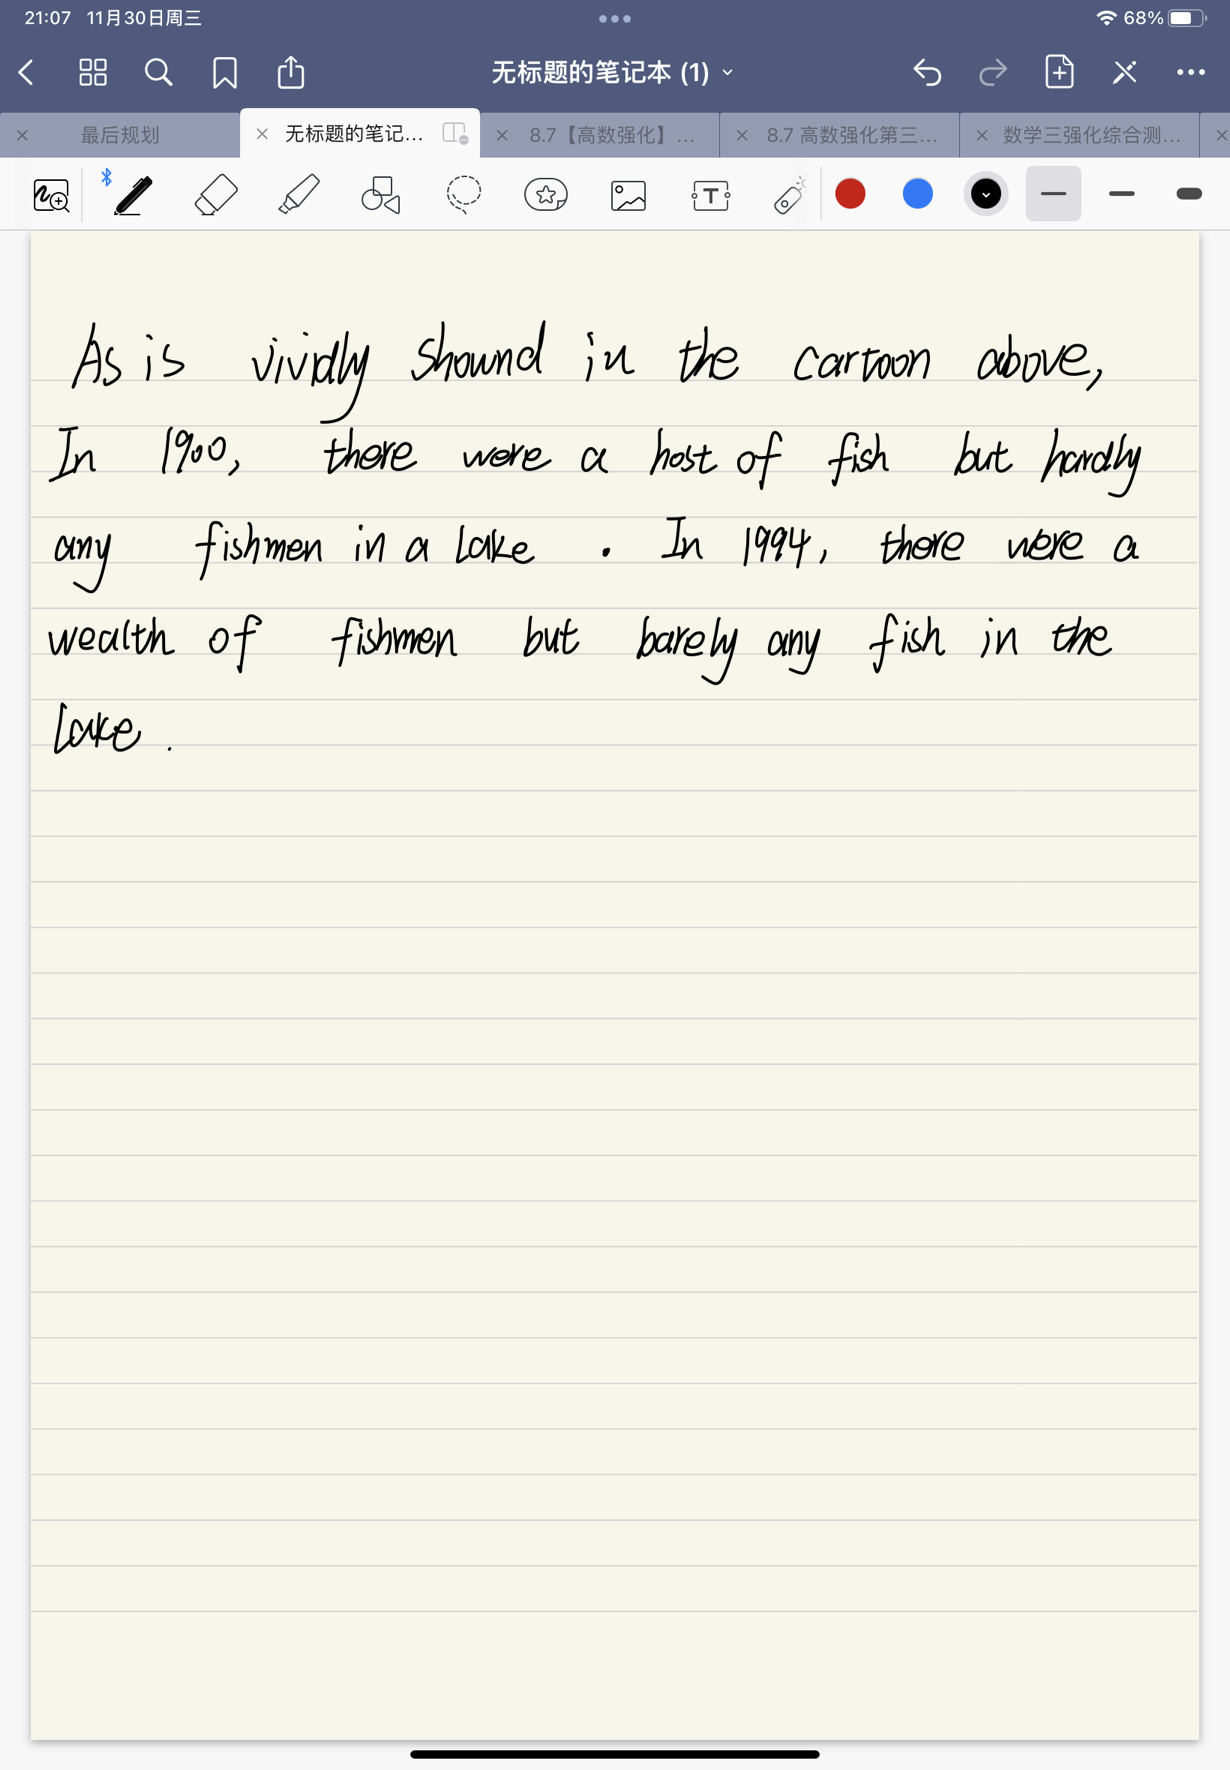 21:07 11月30日周三 68%
无标题的笔记本 (1)
最后规划 无标题的笔记... 8.7【高数强化】... 8.7 高数强化第三... 数学三强化综合测...
As is vividly shownd in the cartoon above,
In 1900, there were a host of fish but hardly
any fishmen in a lake . In 1994, there were a
wealth of fishmen but barely any fish in the
lake .